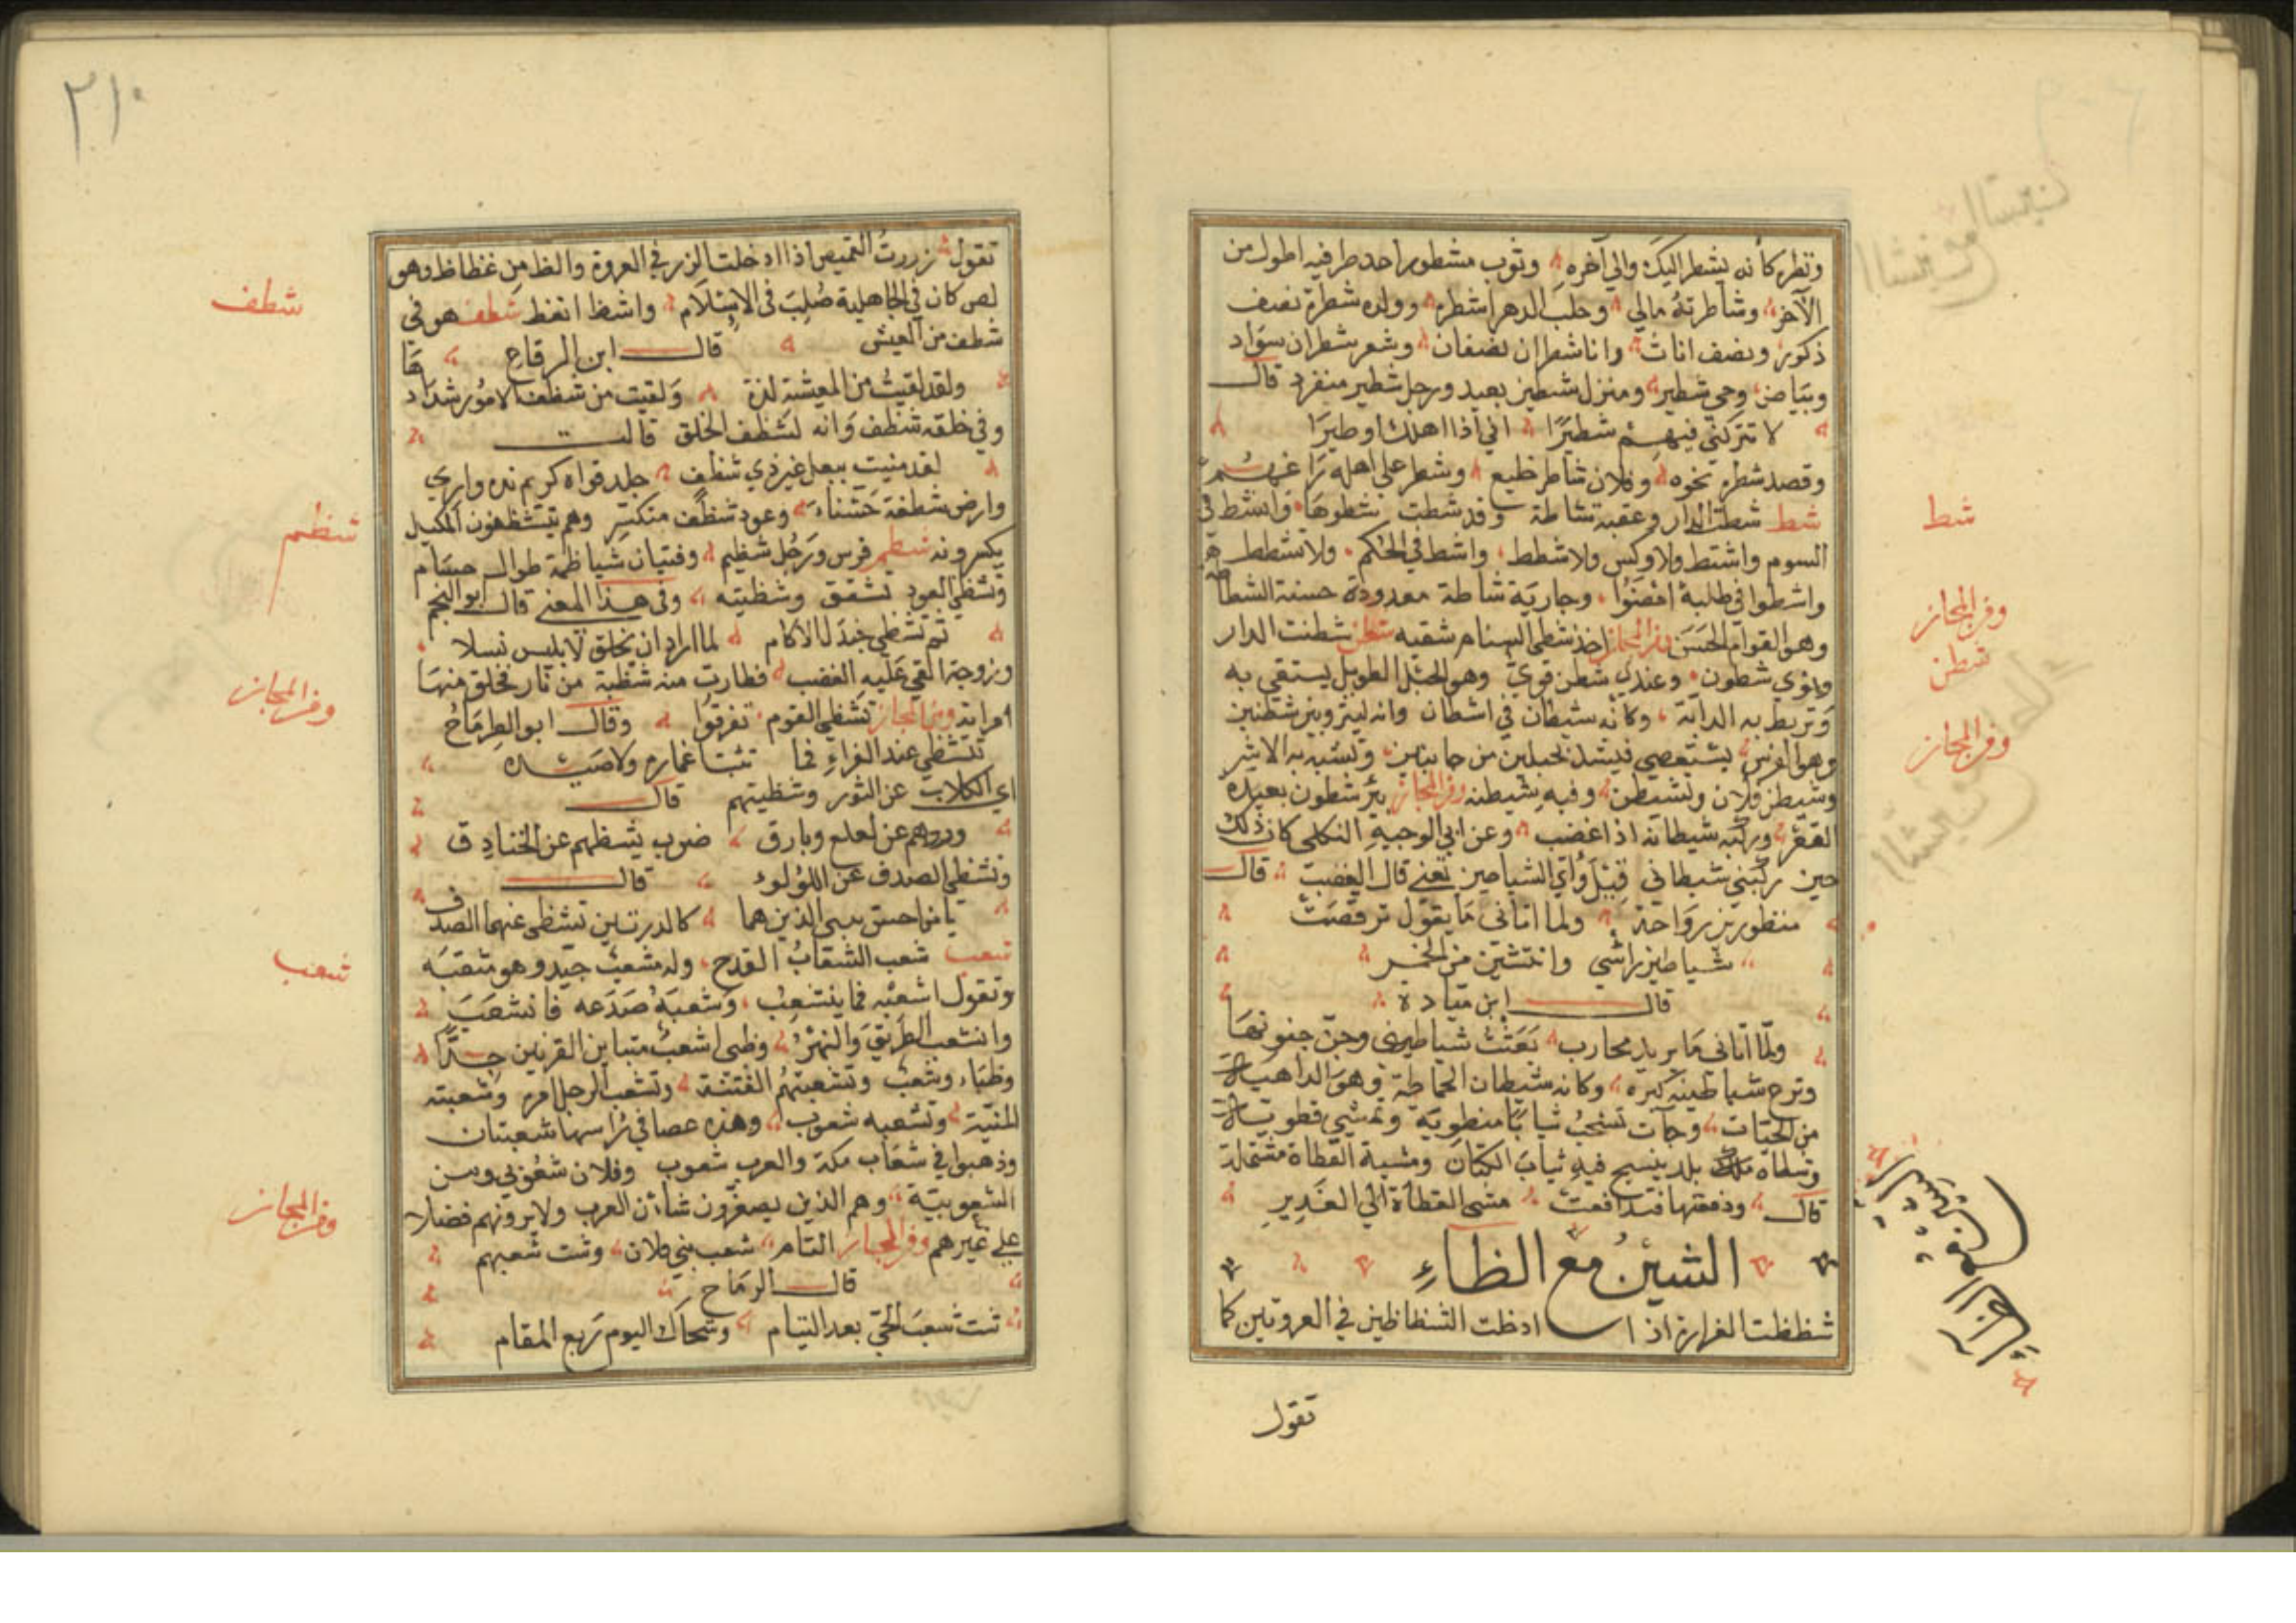 ونظره كأنه يشطر إليك وإلى آخره وثوب مشطور أحد طرفيه أطول من
الآخر وشاطرته مالي وحلب الدهر اشطره وولده شطرة نصف
ذكور ونصف اناث وانا شطران نصفان وشعر شطران سواد
وبياض وحي شطير ومنزل شطير بعيد ورجل شطير منفرد قال
لا تتركني فيهم شطيرًا اني اذا اهلك او طيرا
وقصد شطره نحوه وفلان شاطر خليع وشطر على اهله راغمهم
شط شطت الدار وعقبة شاطة وقد شطت شطوها واشتط في
السوم واشتط ولا وكس ولا شطط واشط في الحكم ولا تشطط
واشطوا في طلبه امعنوا وجارية شاطة معدودة حسنة الشطاط
وهو القوام الحسن وفي المجاز اخذ شطي السنام شقيه شطن شطنت الدار
ونوى شطون وعندي شطن قوي وهو الحبل الطويل يستقى به
وتربط به الدابة وكانه شيطان في اشطان وانه لينزو بين شطنين
وهو الفرس يستعصي فيشد بحبلين من جانبين وتشبه به الاشر
وشيطن فلان وتشيطن وفيه شيطنة وفي المجاز بئر شطون بعيدة
القعر وركبه شيطانه اذا غضب وعن ابي الوجيه العكلي كان ذلك
حين ركبني شيطاني قيل واي الشياطين تعني قال الغضب قال
منظور بن رواحة ولما اتاني ما يقول ترقصت
شياطين راسي وانتشين من الخمر
قال ابن ميادة
ولما اتاني ما يريد محارب تغنت شياطيني وجن جنونها
ونزع شياطينه كبره وكانه شيطان الحماطة وهو الداهية
من الحيات وجآت تسحب ثيابا منطوية وتمشي قطوية
بلد ينسج فيه ثياب الكتان ومشية القطاة مشتملة
قال ودفعتها فتدافعت مشى القطاة الى الغدير
الشين مع الظاء
شظظت الغرارة اذا ادخلت الشظاظين في العروتين كما
تقول
شط
وفي المجاز
شطن
وفي المجاز
٢١٠
تقول زررت القميص اذا ادخلت الزر في العروة والظ من غظاظ وهو
لص كان في الجاهلية صلب في الاسلام واشظ انغظ شظف هو في
شظف من العيش قال ابن الرقاع
ولقد لقيت من المعيشة لذة ولقيت من شظف الامور شداد
وفي خلقه شظف وانه لشظف الخلق قالت
لقد منيت ببعل غير ذي شظف جلد قواه كريم نده واري
وارض شظفة خشناء وعود شظف منكسر وهم يتشظفون المكيل
يكسرونه شظم فرس ورجل شظيم وفتيان شياظمة طوال جسام
وتشظي العود تشقق وشظيته وفي هذا المعنى قال ابو النجم
ثم تشظي جندل الاكام لما اراد ان يخلق لابليس نسلا
وزوجة القى عليه الغضب فطارت منه شظية من نار فخلق منها
امراته وفي المجاز تشظي القوم تفرقوا وقال ابو الطرماح
تتشظي عند الفراء فما تثبت اغماره ولا صيده
اي الكلاب عن الثور وشظيتهم قال
وردهم عن لعلع وبارق ضرب يشظيهم عن الخنادق
وتشظي الصدف عن اللولوء قال
يا من احس بنيي الذين هما كالدرتين تشظى عنهما الصدف
شعب شعب الشقاب القدح وله مشعب جيد وهو مثقبه
وتقول اشعبه فما ينشعب وشعبه صدعه فانشعب
وانشعب الطريق والنهر وظبي اشعب متباين القرنين جدا
وظباء وشعب وتشعبتهم الفتنة وتشعب الرجل امره وشعبته
المنية وتشعبه شعوب وهذه عصا في راسها شعبتان
وذهبوا في شعاب مكة والعرب شعوب وفلان شعوبي ومن
الشعوبية وهم الذين يصغرون شان العرب ولا يرونهم فضلا
على غيرهم وفي المجاز التام شعب بني فلان وشت شعبهم
قال الرماح
شت شعب الحي بعد التيام وشجاك اليوم ربع المقام
شظف
شظم
وفي المجاز
شعب
وفي المجاز